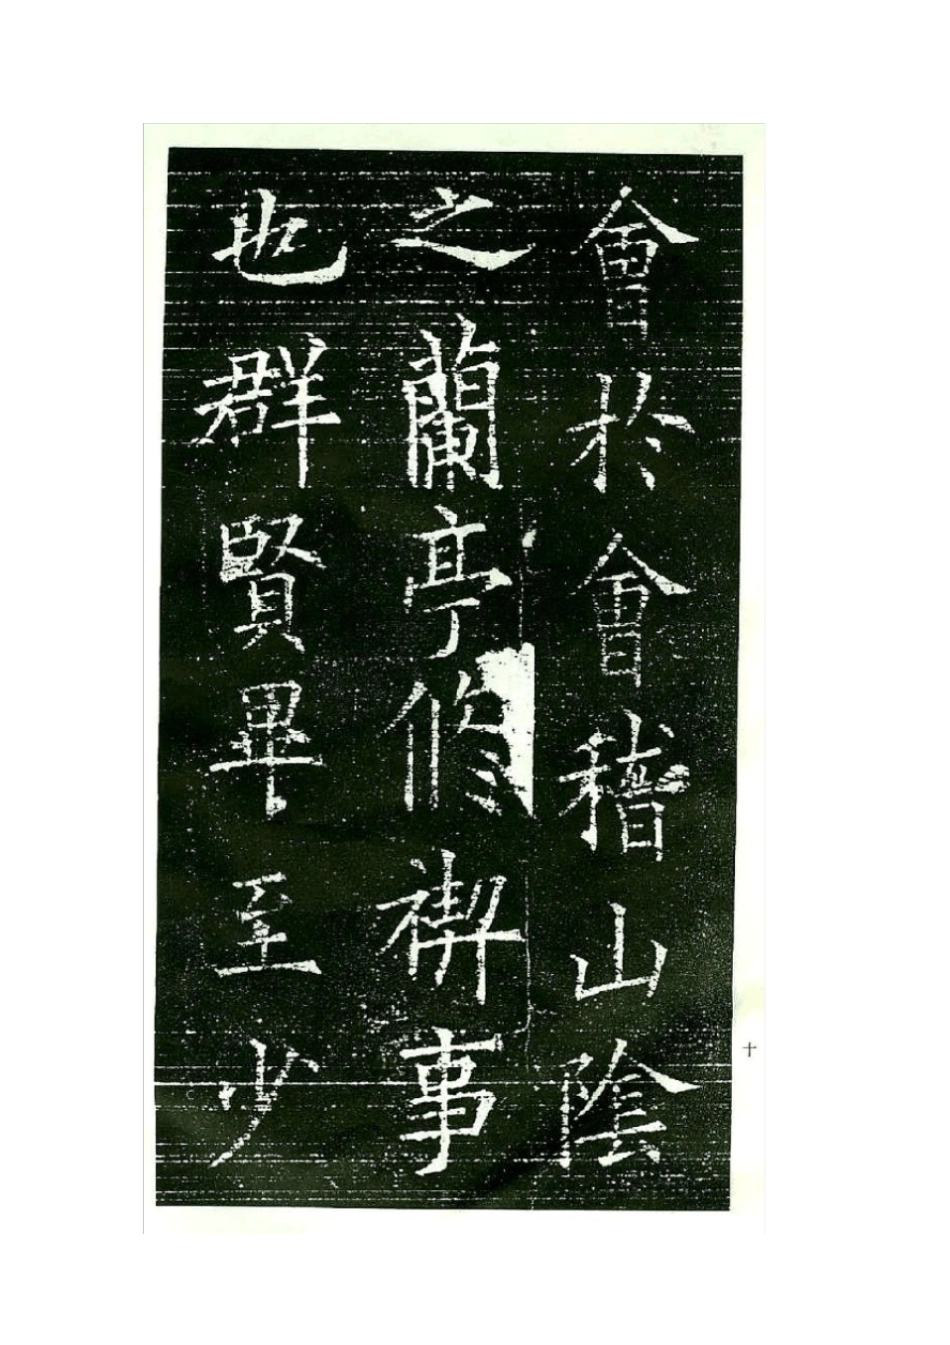 會於會稽山陰
之蘭亭修禊事
也群賢畢至少
十